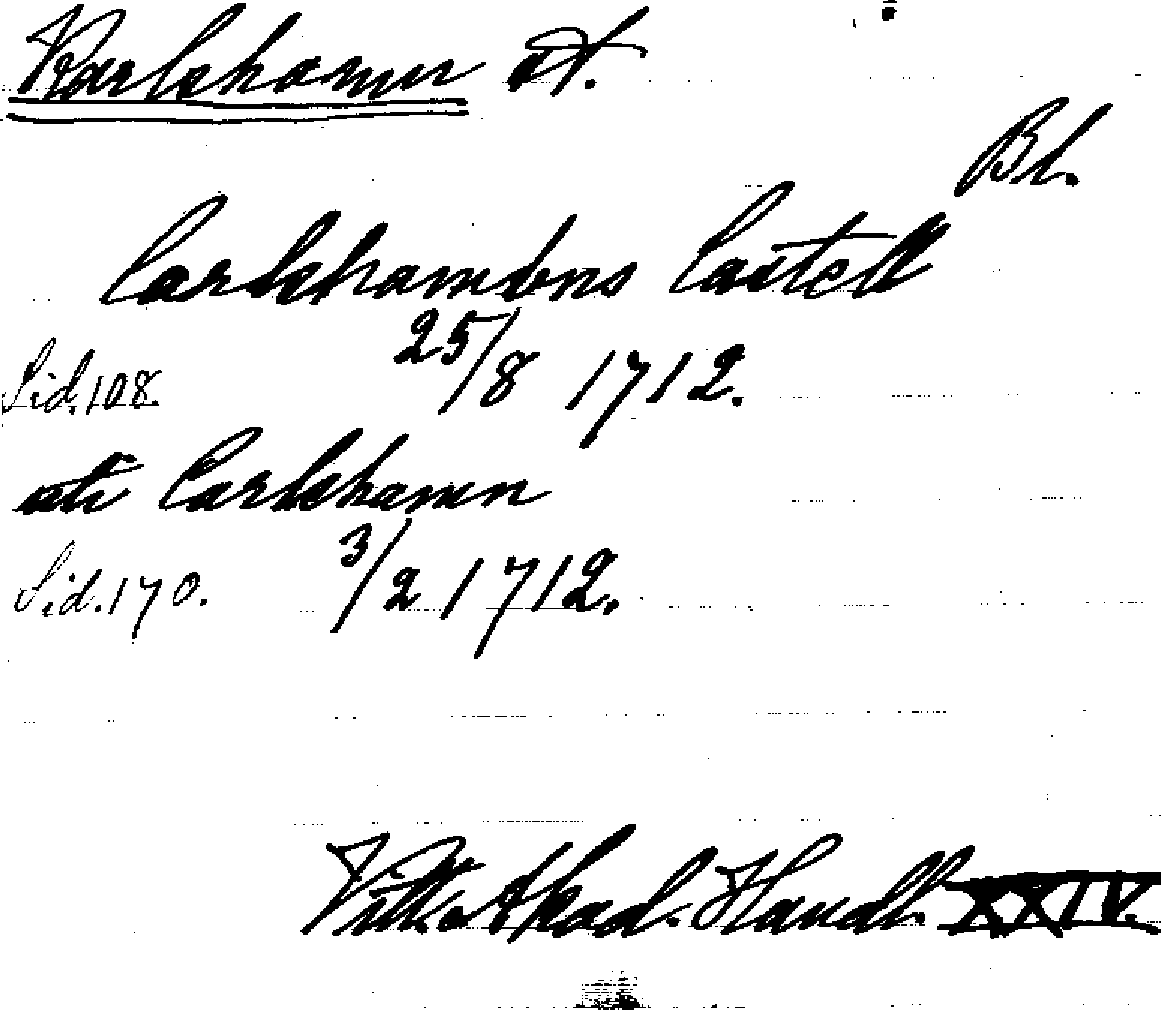 Karlshamn st.
Bl.
Carlshambns Castell
Sid. 108. 25/8 1712.
uti Carlshamn
Sid. 170. 3/2 1712.
Vitt. Akad. Handl. XXIV.